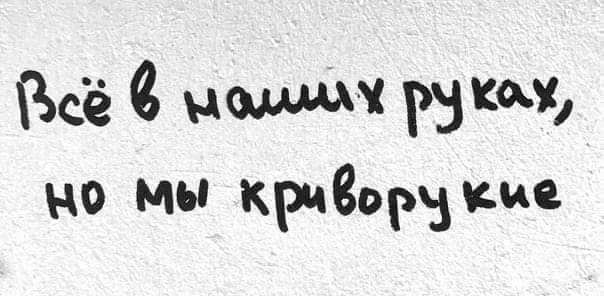 Всё в наших руках,
но мы криворукие